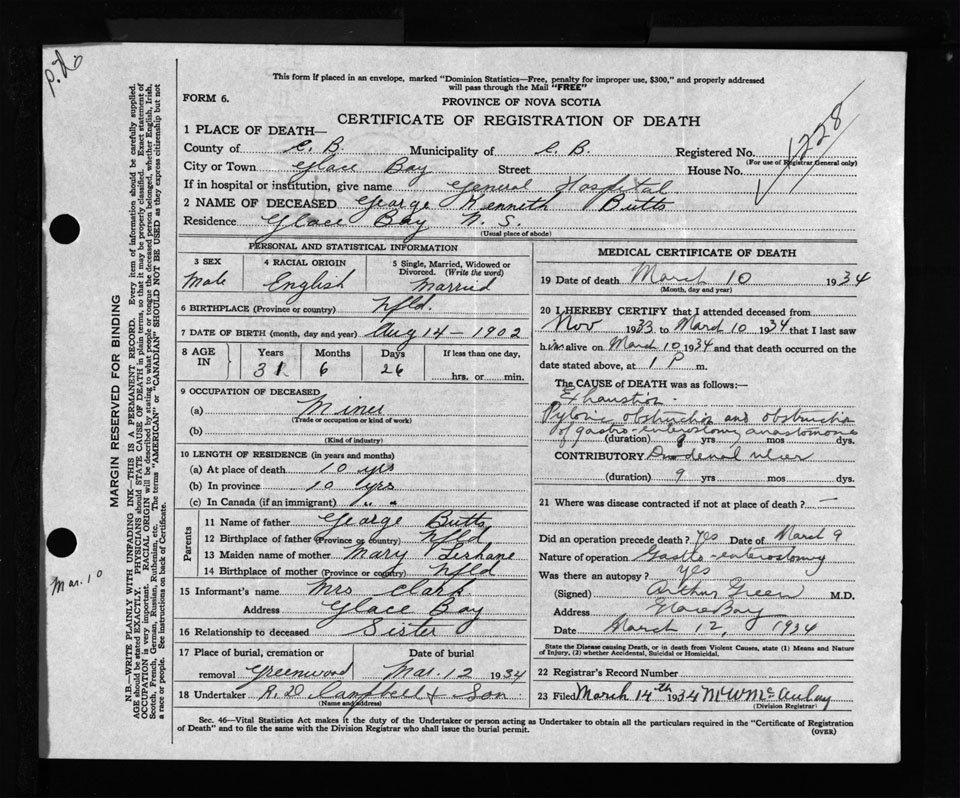 P.T.O
This form if placed in an envelope, marked "Dominion Statistics—Free, penalty for improper use, $300," and properly addressed
will pass through the Mail "FREE"
FORM 6.
PROVINCE OF NOVA SCOTIA
CERTIFICATE OF REGISTRATION OF DEATH
1228
1 PLACE OF DEATH—
County of C.B. Municipality of C.B. Registered No.
(For use of Registrar General only)
City or Town Glace Bay Street House No.
If in hospital or institution, give name General Hospital
2 NAME OF DECEASED George Kenneth Butts
Residence Glace Bay N.S.
(Usual place of abode)
PERSONAL AND STATISTICAL INFORMATION
3 SEX 4 RACIAL ORIGIN 5 Single, Married, Widowed or
Divorced. (Write the word)
Male English Married
6 BIRTHPLACE (Province or country) Nfld.
7 DATE OF BIRTH (month, day and year) Aug 14 - 1902
8 AGE IN Years Months Days If less than one day,
31 6 26 hrs. or min.
9 OCCUPATION OF DECEASED
(a) Miner
(Trade or occupation or kind of work)
(b)
(Kind of industry)
10 LENGTH OF RESIDENCE (in years and months)
(a) At place of death 10 yrs
(b) In province 10 yrs
(c) In Canada (if an immigrant) " "
Parents
11 Name of father George Butts
12 Birthplace of father (Province or country) Nfld
13 Maiden name of mother Mary
14 Birthplace of mother (Province or country) Nfld
15 Informant's name Mrs Clark
Address Glace Bay
16 Relationship to deceased Sister
17 Place of burial, cremation or Date of burial
removal Greenwood Mar. 12 1934
18 Undertaker R.D Campbell & Son
(Name and address)
MEDICAL CERTIFICATE OF DEATH
19 Date of death March 10 1934
(Month, day and year)
20 I HEREBY CERTIFY that I attended deceased from
Nov 1933 to March 10 1934 that I last saw
him alive on March 10 1934 and that death occurred on the
date stated above, at 1 P m.
The CAUSE OF DEATH was as follows:—
Exhaustion
Pyloric obstruction and obstruction
of gastro-enterostomy anastomosis
(duration) 9 yrs mos dys.
CONTRIBUTORY Duodenal ulcer
(duration) 9 yrs mos dys.
21 Where was disease contracted if not at place of death? —
Did an operation precede death? Yes Date of March 9
Nature of operation Gastro-enterostomy
Was there an autopsy? yes
(Signed) Arthur Green M.D.
Address Glace Bay
Date March 12, 1934
State the Disease causing Death, or in death from Violent Causes, state (1) Means and Nature
of Injury, (2) whether Accidental, Suicidal or Homicidal.
22 Registrar's Record Number
23 Filed March 14th 1934 M W McAulay
(Division Registrar)
Sec. 46—Vital Statistics Act makes it the duty of the Undertaker or person acting as Undertaker to obtain all the particulars required in the "Certificate of Registration
of Death" and to file the same with the Division Registrar who shall issue the burial permit.
(OVER)
MARGIN RESERVED FOR BINDING
N.B.—WRITE PLAINLY WITH UNFADING INK—THIS IS A PERMANENT RECORD. Every item of information should be carefully supplied.
AGE should be stated EXACTLY. PHYSICIANS should STATE CAUSE OF DEATH in plain terms, so that it may be properly classified. Exact statement of
OCCUPATION is very important. RACIAL ORIGIN will be described by stating to what people or tongue the deceased person belonged, whether English, Irish,
Scotch, French, German, Russian, Ruthenian, etc. The terms "AMERICAN" or "CANADIAN" SHOULD NOT BE USED as they express citizenship but not
a race or people. See instructions on back of Certificate.
Mar. 10